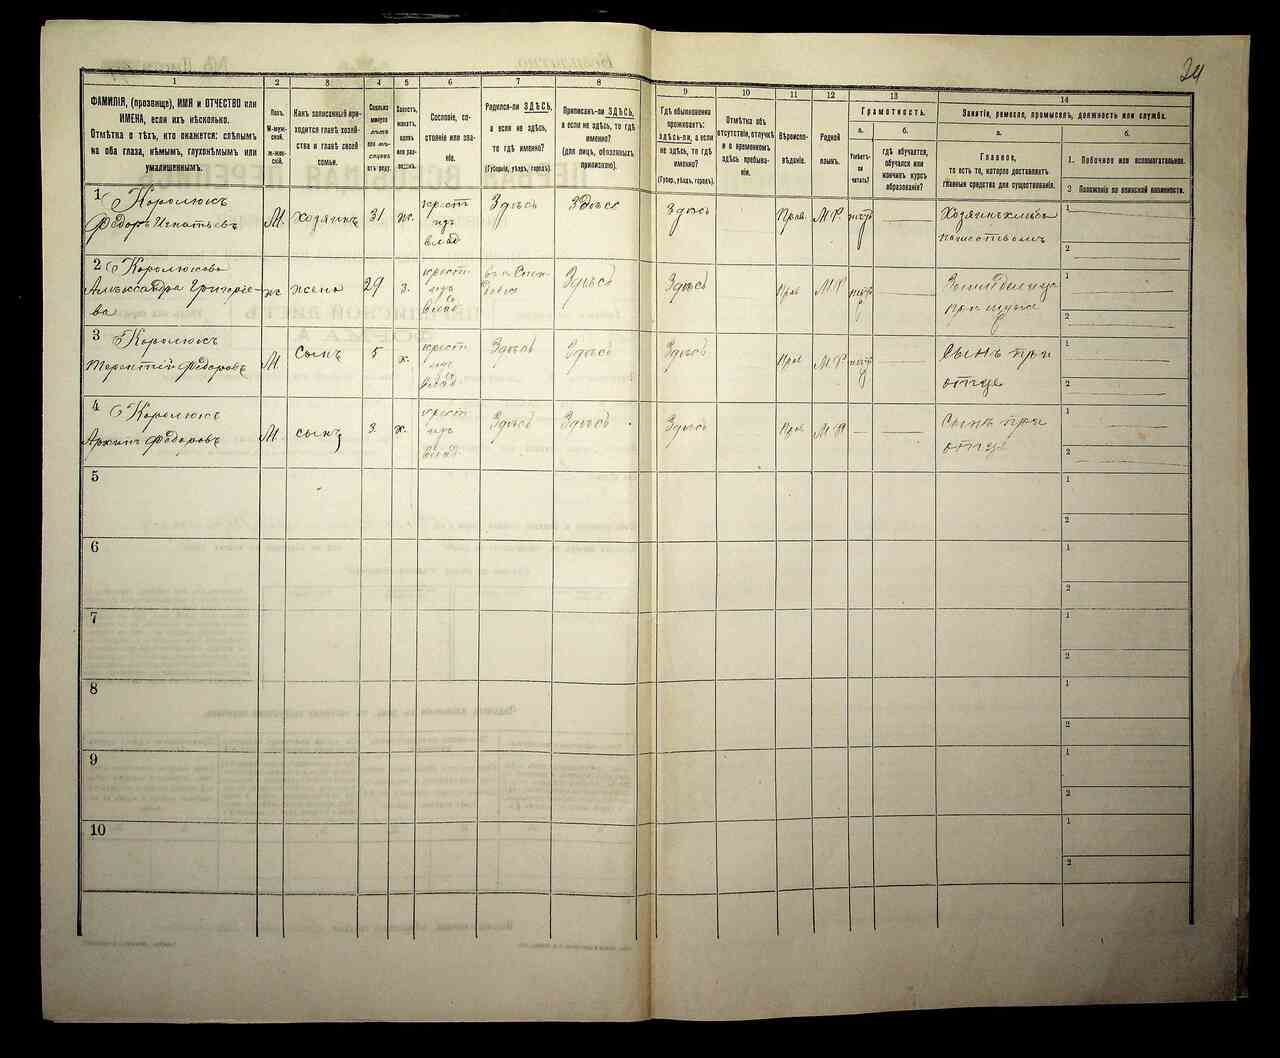 24
1
2
3
4
5
6
7
8
9
10
11
12
13
14
ФАМИЛІЯ, (прозвище), ИМЯ и ОТЧЕСТВО или
ИМЕНА, если ихъ нѣсколько.
Отмѣтка о тѣхъ, кто окажется: слѣпымъ
на оба глаза, нѣмымъ, глухонѣмымъ или
умалишеннымъ.
Полъ.
М-муж-
ской.
Ж-жен-
скій.
Какъ записанный при-
ходится главѣ хозяй-
ства и главѣ своей
семьи.
Сколько
минуло
лѣтъ
или мѣ-
сяцевъ
отъ роду.
Холостъ,
женатъ,
вдовъ
или раз-
веденъ.
Сословіе, со-
стояніе или зва-
ніе.
Родился-ли ЗДѢСЬ,
а если не здѣсь,
то гдѣ именно?
(Губернія, уѣздъ, городъ).
Приписанъ-ли ЗДѢСЬ,
а если не здѣсь, то гдѣ
именно?
(для лицъ, обязанныхъ
припискою).
Гдѣ обыкновенно
проживаетъ:
здѣсь-ли, а если
не здѣсь, то гдѣ
именно?
(Губер., уѣздъ, городъ).
Отмѣтка объ
отсутствіи, отлучкѣ
и о временномъ
здѣсь пребыва-
ніи.
Вѣроиспо-
вѣданіе.
Родной
языкъ.
Грамотность.
а.
б.
Умѣетъ-
ли
читать?
гдѣ обучается,
обучался или
кончилъ курсъ
образованія?
Занятіе, ремесло, промыселъ, должность или служба.
а.
б.
Главное,
то есть то, которое доставляетъ
главныя средства для существованія.
1. Побочное или вспомогательное.
2 Положеніе по воинской повинности.
1 Королюкъ
Федоръ Игнатьевъ М. Хозяинъ 31 ж. крест изъ влад Здѣсь Здѣсь Здѣсь Прав. М Р нѣтъ Хозяинъ
1
2
2 Королюкова
Александра Григорье-
ва ж жена 29 з. крест изъ влад Здѣсь Здѣсь Прав М Р нѣтъ
1
2
3 Королюкъ
Терентій Федоровъ М. Сынъ 5 х. крест изъ влад Здѣсь Здѣсь Здѣсь Прав М Р нѣтъ Сынъ при
отцѣ
1
2
4 Королюкъ
Архипъ Федоровъ М. сынъ 3 х. крест изъ влад Здѣсь Здѣсь Здѣсь Прав М Р Сынъ при
отцѣ
1
2
5
1
2
6
1
2
7
1
2
8
1
2
9
1
2
10
1
2